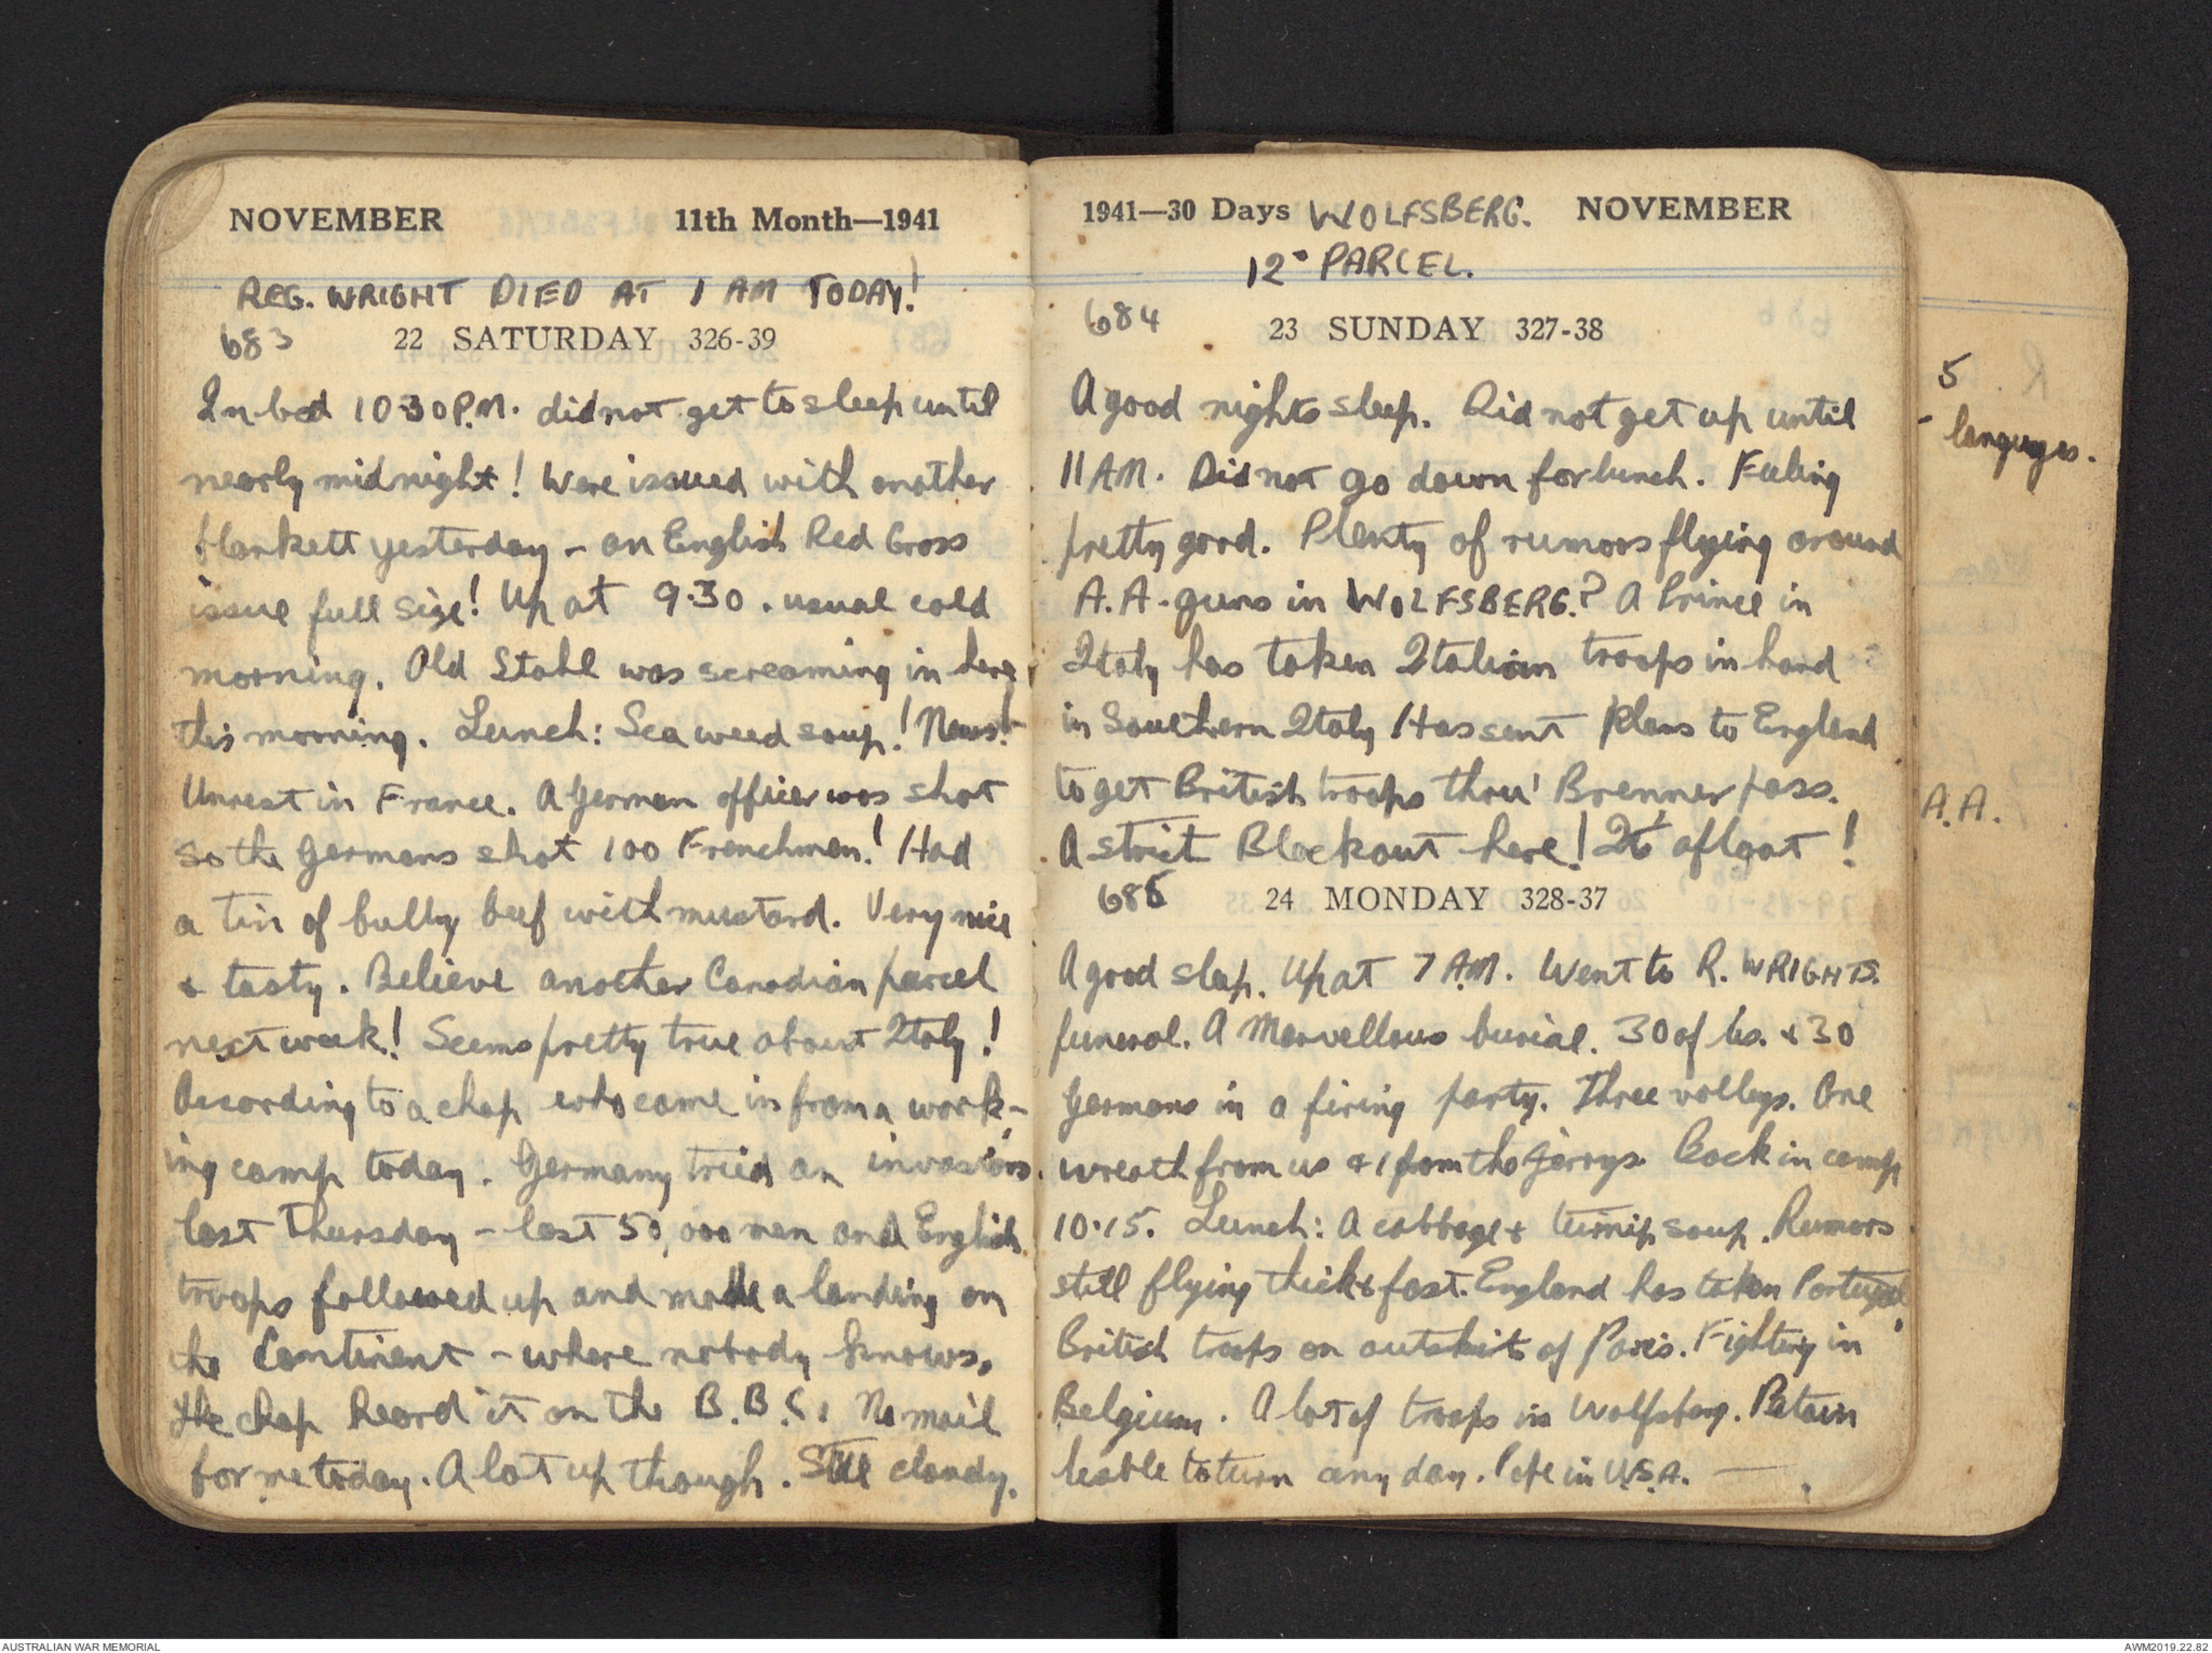 NOVEMBER 11th Month—1941
REG. WRIGHT DIED AT 1 AM TODAY!
683 22 SATURDAY 326-39
In bed 10.30 P.M. did not get to sleep until
nearly midnight! Were issued with another
blankett yesterday - an English Red Cross
issue full size! Up at 9.30. usual cold
morning. Old Stahl was screaming in here
this morning. Lunch: Sea weed soup! News!
Unrest in France. A German officer was shot
so the Germans shot 100 Frenchmen! Had
a tin of bully beef with mustard. Very nice
& tasty. Believe another Canadian parcel
next week! Seems pretty true about Italy!
According to a chap who came in from a work-
ing camp today. Germany tried an invasion
last Thursday - lost 50,000 men and English
troops followed up and made a landing on
the Continent - where nobody knows.
The chap heard it on the B.B.C. No mail
for me today. A lot up though. Still cloudy.
1941—30 Days WOLFSBERG. NOVEMBER
12° PARCEL.
684 23 SUNDAY 327-38
A good nights sleep. Did not get up until
11 AM. Did not go down for lunch. Feeling
pretty good. Plenty of rumors flying around
A.A. guns in WOLFSBERG.? A Prince in
Italy has taken Italian troops in hand
in Southern Italy Has sent plans to England
to get British troops thru' Brenner pass.
A strict Blackout here! afloat!
685 24 MONDAY 328-37
A good sleep. Up at 7 A.M. Went to R. WRIGHTS.
funeral. A Marvellous burial. 30 of Us. & 30
Germans in a firing party. Three volleys. One
wreath from us & 1 from the Jerrys. Back in camp
10.15. Lunch: A cabbage & turnip soup. Rumors
still flying thick & fast. England has taken Portugal
British troops on outskirts of Paris. Fighting in
Belgium. A lot of troops in Wolfsberg. Petain
leable to turn any day. in U.S.A. —
5
- languages.
A.A.
AUSTRALIAN WAR MEMORIAL
AWM2019.22.82